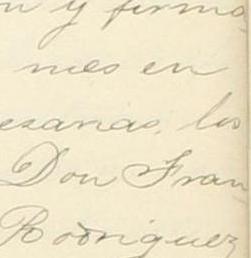 n y firmo
mes en
esarias, los
Don Fran
Rodriguez